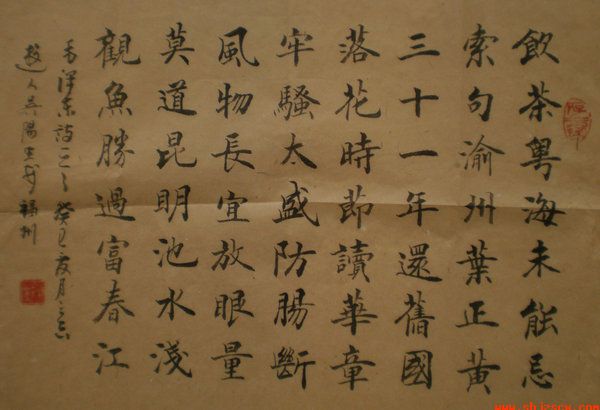 飲茶粤海未能忘
索句渝州葉正黃
三十一年還舊國
落花時節讀華章
牢騷太盛防腸斷
風物長宜放眼量
莫道昆明池水淺
觀魚勝過富春江
毛澤東詩 癸巳夏月
福州